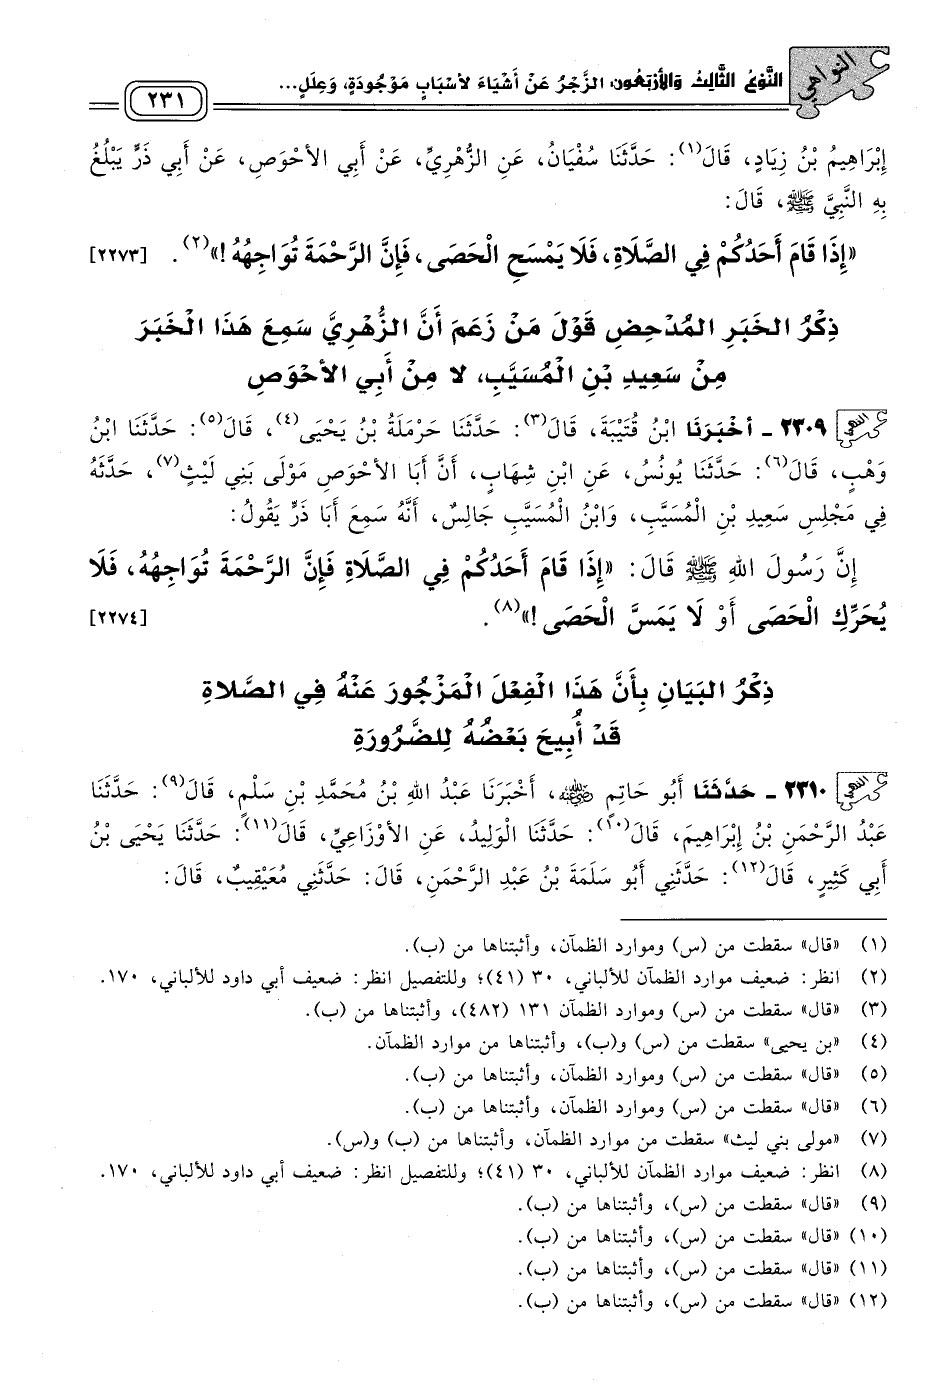 النواهي
النَّوْعُ الثَّالِثُ وَالأَرْبَعُون: الزَّجْرُ عَنْ أَشْيَاءَ لأَسْبَابٍ مَوْجُودَةٍ، وَعِلَلٍ...
٢٣١
إِبْرَاهِيمُ بْنُ زِيَادٍ، قَالَ(١): حَدَّثَنَا سُفْيَانُ، عَنِ الزُّهْرِيِّ، عَنْ أَبِي الأَحْوَصِ، عَنْ أَبِي ذَرٍّ يَبْلُغُ
بِهِ النَّبِيَّ ﷺ، قَالَ:
«إِذَا قَامَ أَحَدُكُمْ فِي الصَّلَاةِ، فَلَا يَمْسَحِ الْحَصَى، فَإِنَّ الرَّحْمَةَ تُوَاجِهُهُ!»(٢). [٢٢٧٣]
ذِكْرُ الخَبَرِ المُدْحِضِ قَوْلَ مَنْ زَعَمَ أَنَّ الزُّهْرِيَّ سَمِعَ هَذَا الْخَبَرَ
مِنْ سَعِيدِ بْنِ الْمُسَيَّبِ، لا مِنْ أَبِي الأَحْوَصِ
٢٣٠٩ - أخْبَرَنَا ابْنُ قُتَيْبَةَ، قَالَ(٣): حَدَّثَنَا حَرْمَلَةُ بْنُ يَحْيَى(٤)، قَالَ(٥): حَدَّثَنَا ابْنُ
وَهْبٍ، قَالَ(٦): حَدَّثَنَا يُونُسُ، عَنِ ابْنِ شِهَابٍ، أَنَّ أَبَا الأَحْوَصِ مَوْلَى بَنِي لَيْثٍ(٧)، حَدَّثَهُ
فِي مَجْلِسِ سَعِيدِ بْنِ الْمُسَيَّبِ، وَابْنُ الْمُسَيَّبِ جَالِسٌ، أَنَّهُ سَمِعَ أَبَا ذَرٍّ يَقُولُ:
إِنَّ رَسُولَ اللهِ ﷺ قَالَ: «إِذَا قَامَ أَحَدُكُمْ فِي الصَّلَاةِ فَإِنَّ الرَّحْمَةَ تُوَاجِهُهُ، فَلَا
يُحَرِّكِ الْحَصَى أَوْ لَا يَمَسَّ الْحَصَى!»(٨). [٢٢٧٤]
ذِكْرُ البَيَانِ بِأَنَّ هَذَا الْفِعْلَ الْمَزْجُورَ عَنْهُ فِي الصَّلاةِ
قَدْ أُبِيحَ بَعْضُهُ لِلضَّرُورَةِ
٢٣١٠ - حَدَّثَنَا أَبُو حَاتِمٍ ﵁، أَخْبَرَنَا عَبْدُ اللهِ بْنُ مُحَمَّدِ بْنِ سَلْمٍ، قَالَ(٩): حَدَّثَنَا
عَبْدُ الرَّحْمَنِ بْنُ إِبْرَاهِيمَ، قَالَ(١٠): حَدَّثَنَا الْوَلِيدُ، عَنِ الأَوْزَاعِيِّ، قَالَ(١١): حَدَّثَنَا يَحْيَى بْنُ
أَبِي كَثِيرٍ، قَالَ(١٢): حَدَّثَنِي أَبُو سَلَمَةَ بْنُ عَبْدِ الرَّحْمَنِ، قَالَ: حَدَّثَنِي مُعَيْقِيبٌ، قَالَ:
(١) «قال» سقطت من (س) وموارد الظمآن، وأثبتناها من (ب).
(٢) انظر: ضعيف موارد الظمآن للألباني، ٣٠ (٤١)؛ وللتفصيل انظر: ضعيف أبي داود للألباني، ١٧٠.
(٣) «قال» سقطت من (س) وموارد الظمآن ١٣١ (٤٨٢)، وأثبتناها من (ب).
(٤) «بن يحيى» سقطت من (س) و(ب)، وأثبتناها من موارد الظمآن.
(٥) «قال» سقطت من (س) وموارد الظمآن، وأثبتناها من (ب).
(٦) «قال» سقطت من (س) وموارد الظمآن، وأثبتناها من (ب).
(٧) «مولى بني ليث» سقطت من موارد الظمآن، وأثبتناها من (ب) و(س).
(٨) انظر: ضعيف موارد الظمآن للألباني، ٣٠ (٤١)؛ وللتفصيل انظر: ضعيف أبي داود للألباني، ١٧٠.
(٩) «قال» سقطت من (س)، وأثبتناها من (ب).
(١٠) «قال» سقطت من (س)، وأثبتناها من (ب).
(١١) «قال» سقطت من (س)، وأثبتناها من (ب).
(١٢) «قال» سقطت من (س)، وأثبتناها من (ب).